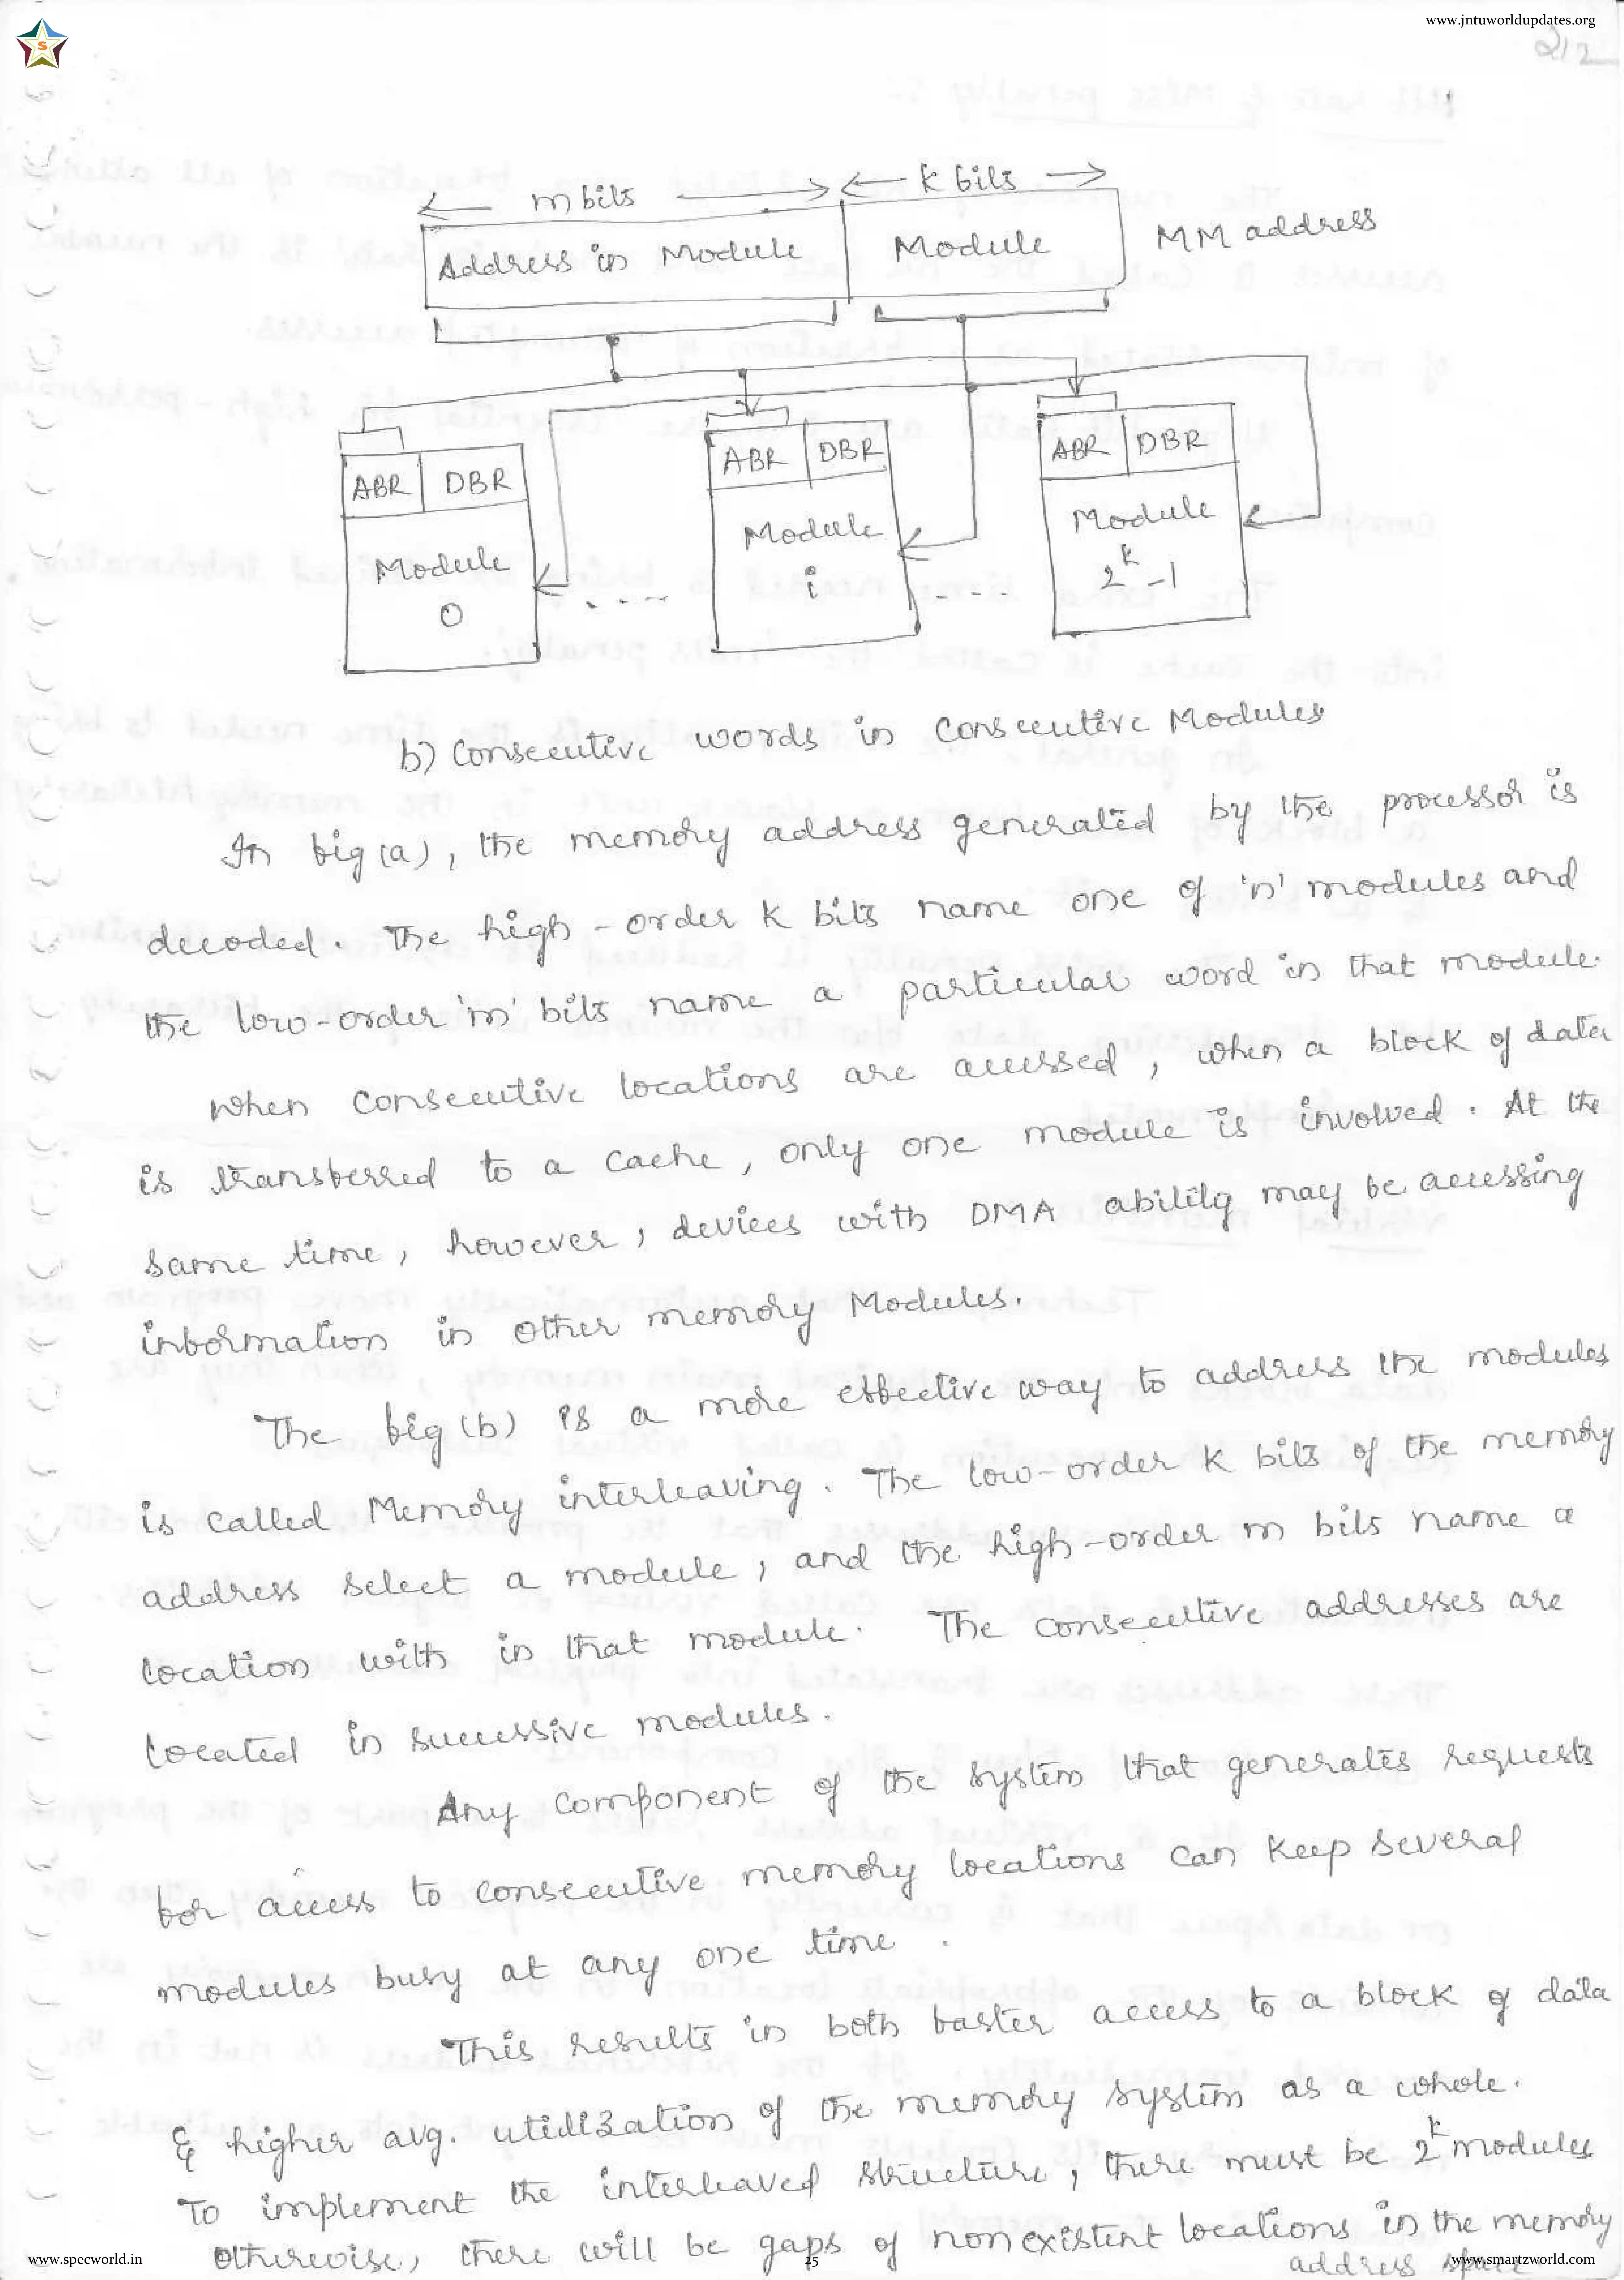 www.jntuworldupdates.org
S
212
m bits k bits
Address in Module Module MM address
ABR DBR ABR DBR ABR DBR
Module 0 Module i Module 2^k -1
b) Consecutive words in Consecutive Modules
In fig (a), the memory address generated by the processor is
decoded. The high-order k bits name one of 'n' modules and
the low-order 'm' bits name a particular word in that module.
When consecutive locations are accessed, when a block of data
is transferred to a cache, only one module is involved. At the
same time, however, devices with DMA ability may be accessing
information in other memory Modules.
The fig (b) is a more effective way to address the modules
is called Memory interleaving. The low-order k bits of the memory
address select a module, and the high-order m bits name a
location with in that module. The consecutive addresses are
located in successive modules.
Any component of the system that generates requests
for access to consecutive memory locations can keep several
modules busy at any one time.
This results in both faster access to a block of data
& higher avg. utilization of the memory system as a whole.
To implement the interleaved structure, there must be 2^k modules
otherwise, there will be gaps of non existent locations in the memory
address space
www.specworld.in 25 www.smartzworld.com